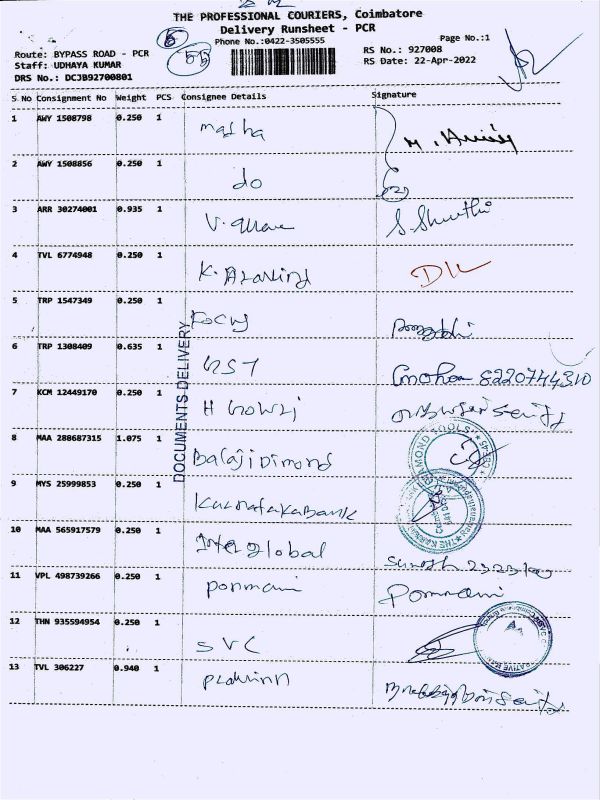 THE PROFESSIONAL COURIERS, Coimbatore
Delivery Runsheet - PCR
Phone No.:0422-3505555
Page No.:1
Route: BYPASS ROAD - PCR
Staff: UDHAYA KUMAR
DRS No.: DCJB92700801
RS No.: 927008
RS Date: 22-Apr-2022
5
55
S No Consignment No Weight PCS Consignee Details Signature
1 AWY 1508798 0.250 1 masha
2 AWY 1508856 0.250 1 do
3 ARR 30274001 0.935 1 S. Shruthi
4 TVL 6774948 0.250 1 K. Aravind
5 TRP 1547349 0.250 1 Focus
6 TRP 1308409 0.635 1 GST 8220744310
7 KCM 12449170 0.250 1 H Gowri
8 MAA 288687315 1.075 1 Balaji Dimond
9 MYS 25999853 0.250 1 Karnataka Bank
10 MAA 565917579 0.250 1 Inter global
11 VPL 498739266 0.250 1 ponmani Ponmani
12 THN 935594954 0.250 1 SVC
13 TVL 306227 0.940 1
DOCUMENTS-DELIVERY